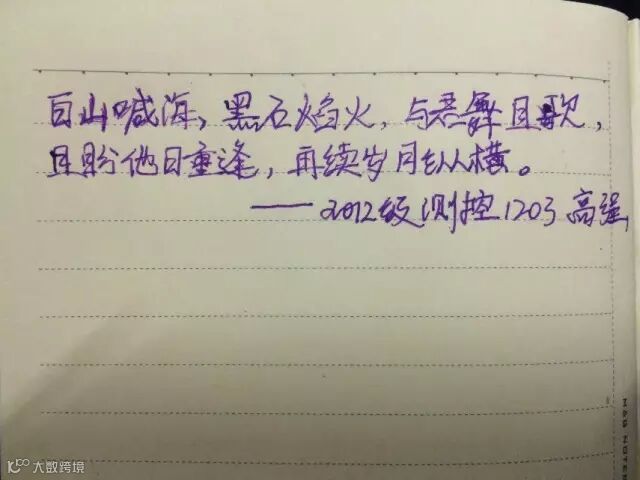 白山喊海，黑石焰火，与君舞且歌，
且盼他日重逢，再续岁月纵横。
——2012级测控1203 高强
M&G NOTE
大数跨境